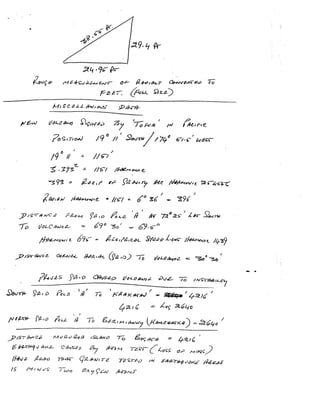 38.55 ft
29.4 ft
24.95 ft
ROUGH MEASUREMENT OF RADIALS CONVERTED TO
FEET. (FULL SIZE)
MISCELLANIOUS DATA
NEW VOLCANO SIGHTED BY 'TOFUA' IN PACIFIC
POSITION 19° 11' SOUTH / 174° 51.5' WEST
19° 11' = 1151'
3.393² = 1151 HARMONIC
.393 = RECIP OF GRAVITY ACC HARMONIC
RADIAN HARMONIC = 1151 = 6° 36' = 396'
DISTANCE FROM GRID POLE 'A' AT 78° 25' LAT SOUTH
TO VOLCANO = 69° 30' = 69.5°
HARMONIC 695 = RECIPROCAL SPEED LIGHT HARMONIC 1439
DISTANCE AERIAL (GRID) TO VOLCANO = 30° 30'
PROVES GRID CAUSED VOLCANO DUE TO INSTABILITY
SOUTH GRID POLE 'A' TO 'KRAKATOA' = 4216'
4216 = 2640
NORTH GRID POLE 'A' TO (KAMCHATKA) = 2640'
DISTANCE MURUROA ISLAND TO BOGOTA = 4216'
EARTHQUAKE CAUSED BY ATOM TEST (LOSS OF MASS)
HAVE READ THAT GRANITE TESTED IN EARTHQUAKE AREAS
IS MINUS TWO OXYGEN ATOMS